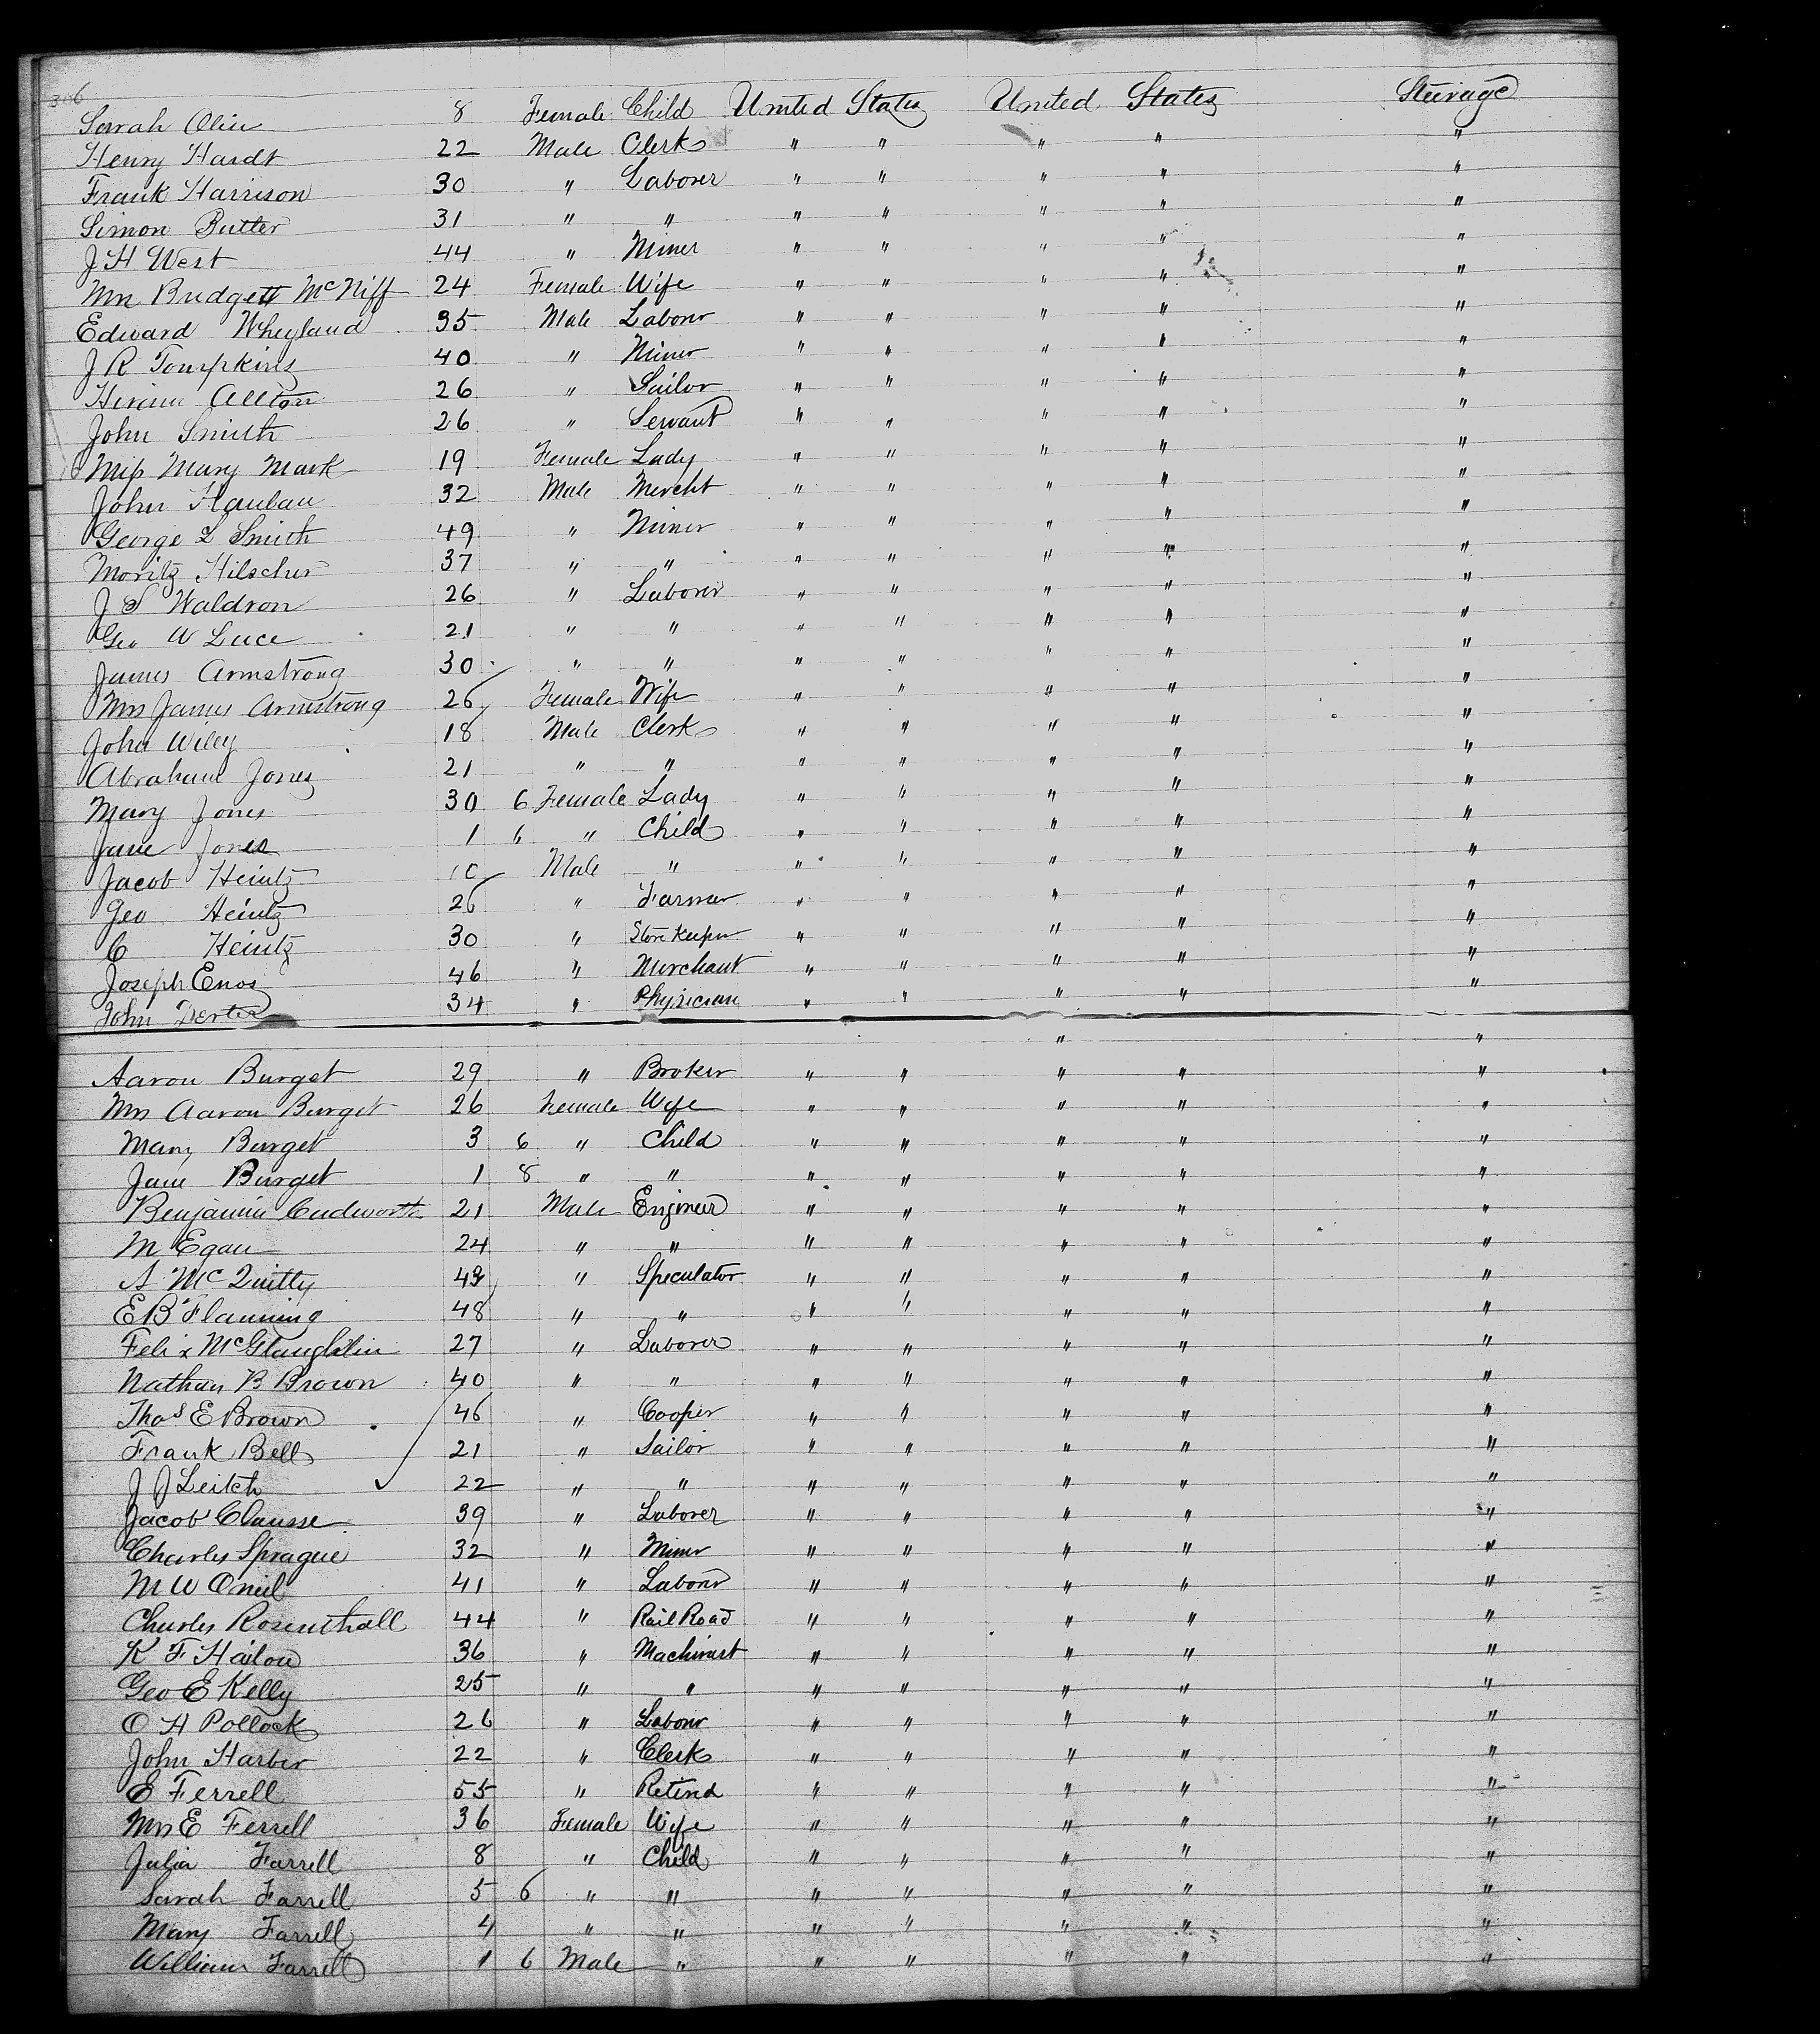 306
Sarah Olin 8 Female Child United States United States Steerage
Henry Hardt 22 Male Clerk " " " " "
Frank Harrison 30 " Laborer " " " " "
Simon Butler 31 " " " " " " "
J H West 44 " Miner " " " " "
Mrs Bridgett McNiff 24 Female Wife " " " " "
Edward Wheyland 35 Male Laborer " " " " "
J R Tompkins 40 " Miner " " " " "
Hiram Allton 26 " Sailor " " " " "
John Smith 26 " Servant " " " " "
Miss Mary Mark 19 Female Lady " " " " "
John Hanlan 32 Male Mercht " " " " "
George L Smith 49 " Miner " " " " "
Moritz Hilscher 37 " " " " " " "
J S Waldron 26 " Laborer " " " " "
Geo W Luce 21 " " " " " " "
James Armstrong 30 " " " " " " "
Mrs James Armstrong 26 Female Wife " " " " "
John Wiley 18 Male Clerk " " " " "
Abraham Jones 21 " " " " " " "
Mary Jones 30 6 Female Lady " " " " "
Jane Jones 1 6 " Child " " " " "
Jacob Heintz 10 Male " " " " " "
Geo Heintz 26 " Farmer " " " " "
C Heintz 30 " Store Keeper " " " " "
Joseph Enos 46 " Merchant " " " " "
John Derter 34 " Physician " " " " "
" "
Aaron Burget 29 " Broker " " " " "
Mrs Aaron Burget 26 Female Wife " " " " "
Mary Burget 3 6 " Child " " " " "
Jane Burget 1 8 " " " " " " "
Benjamin Cudworth 21 Male Engineer " " " " "
M Egan 24 " " " " " " "
A McQuitty 43 " Speculator " " " " "
E B Flanning 48 " " " " " " "
Felix McGlaughlin 27 " Laborer " " " " "
Nathan B Brown 40 " " " " " " "
Thos E Brown 46 " Cooper " " " " "
Frank Bell 21 " Sailor " " " " "
J J Leitch 22 " " " " " " "
Jacob Clausse 39 " Laborer " " " " "
Charles Sprague 32 " Miner " " " " "
M W Oneil 41 " Laborer " " " " "
Charles Rosenthall 44 " Rail Road " " " " "
K F Hailow 36 " Machinist " " " " "
Geo E Kelly 25 " " " " " " "
O H Pollock 26 " Laborer " " " " "
John Harber 22 " Clerk " " " " "
E Ferrell 55 " Retired " " " " "
Mrs E Ferrell 36 Female Wife " " " " "
Julia Farrell 8 " Child " " " " "
Sarah Farrell 5 6 " " " " " " "
Mary Farrell 4 " " " " " " "
William Farrell 1 6 Male " " " " " "